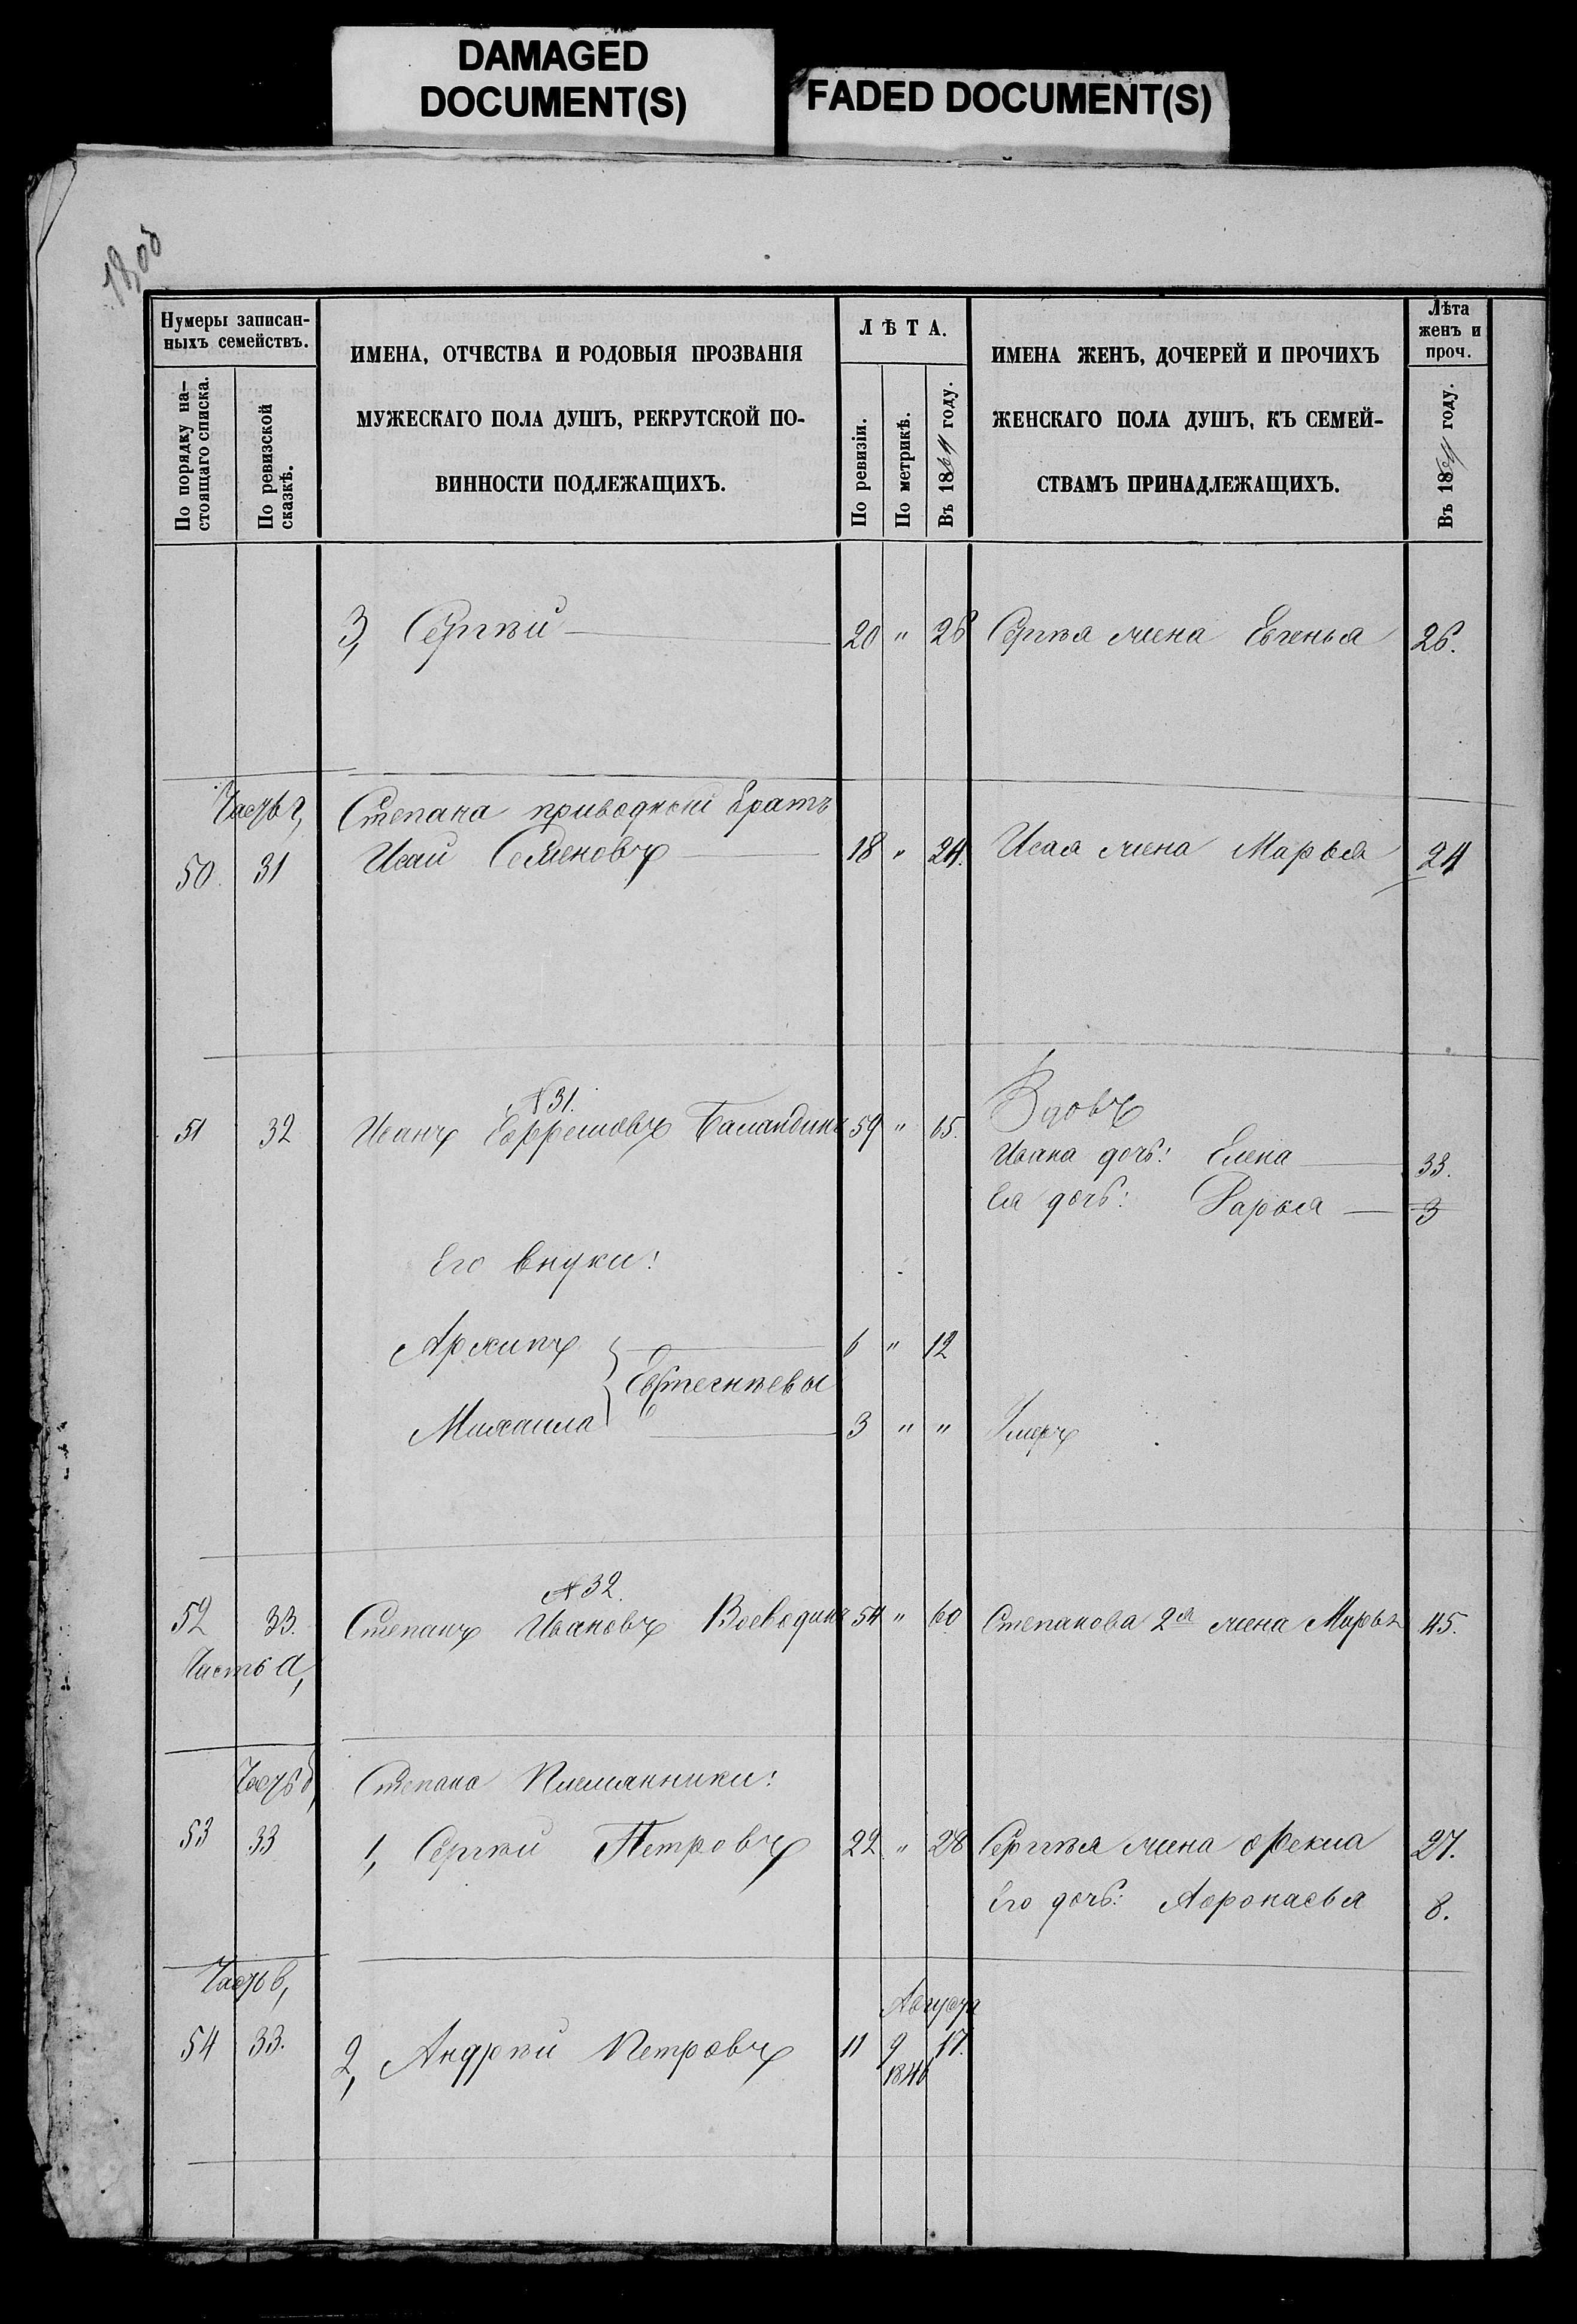 DAMAGED
DOCUMENT(S)
FADED DOCUMENT(S)
Нумеры записан-
ныхъ семействъ.
По порядку на-
стоящаго списка.
По ревизской
сказкѣ.
ИМЕНА, ОТЧЕСТВА И РОДОВЫЯ ПРОЗВАНІЯ
МУЖЕСКАГО ПОЛА ДУШЪ, РЕКРУТСКОЙ ПО-
ВИННОСТИ ПОДЛЕЖАЩИХЪ.
ЛѢТА.
По ревизіи.
По метрикѣ.
Въ 1864 году.
ИМЕНА ЖЕНЪ, ДОЧЕРЕЙ И ПРОЧИХЪ
ЖЕНСКАГО ПОЛА ДУШЪ, КЪ СЕМЕЙ-
СТВАМЪ ПРИНАДЛЕЖАЩИХЪ.
Лѣта
женъ и
проч.
Въ 1864 году.
3, Сергѣй 20 " 26 Сергѣя жена Евгенья 26.
Часть г, Степана приводной братъ
50. 31 Исай Семеновъ 18 " 24. Исая жена Марья 24
N 31. Вдовъ
51 32 Иванъ Еффремовъ Баландинъ 59 " 65.
Ивана дочь: Елена 33.
Ея дочь: Дарья 3
Его внуки:
Архипъ 6 " 12
Евстегнѣевы
Михаила 3 " " Умеръ
N 32.
52 33. Степанъ Ивановъ Воеводинъ 54 " 60 Степанова 2я жена Марья 45.
Часть а,
Часть б, Степана племянники:
53 33 1, Сергѣй Петровъ 22 " 28 Сергѣя жена Фекла 27.
Его дочь: Афонасья 8.
Часть в, Августа
54 33. 2, Андрѣй Петровъ 11 9 17.
1846